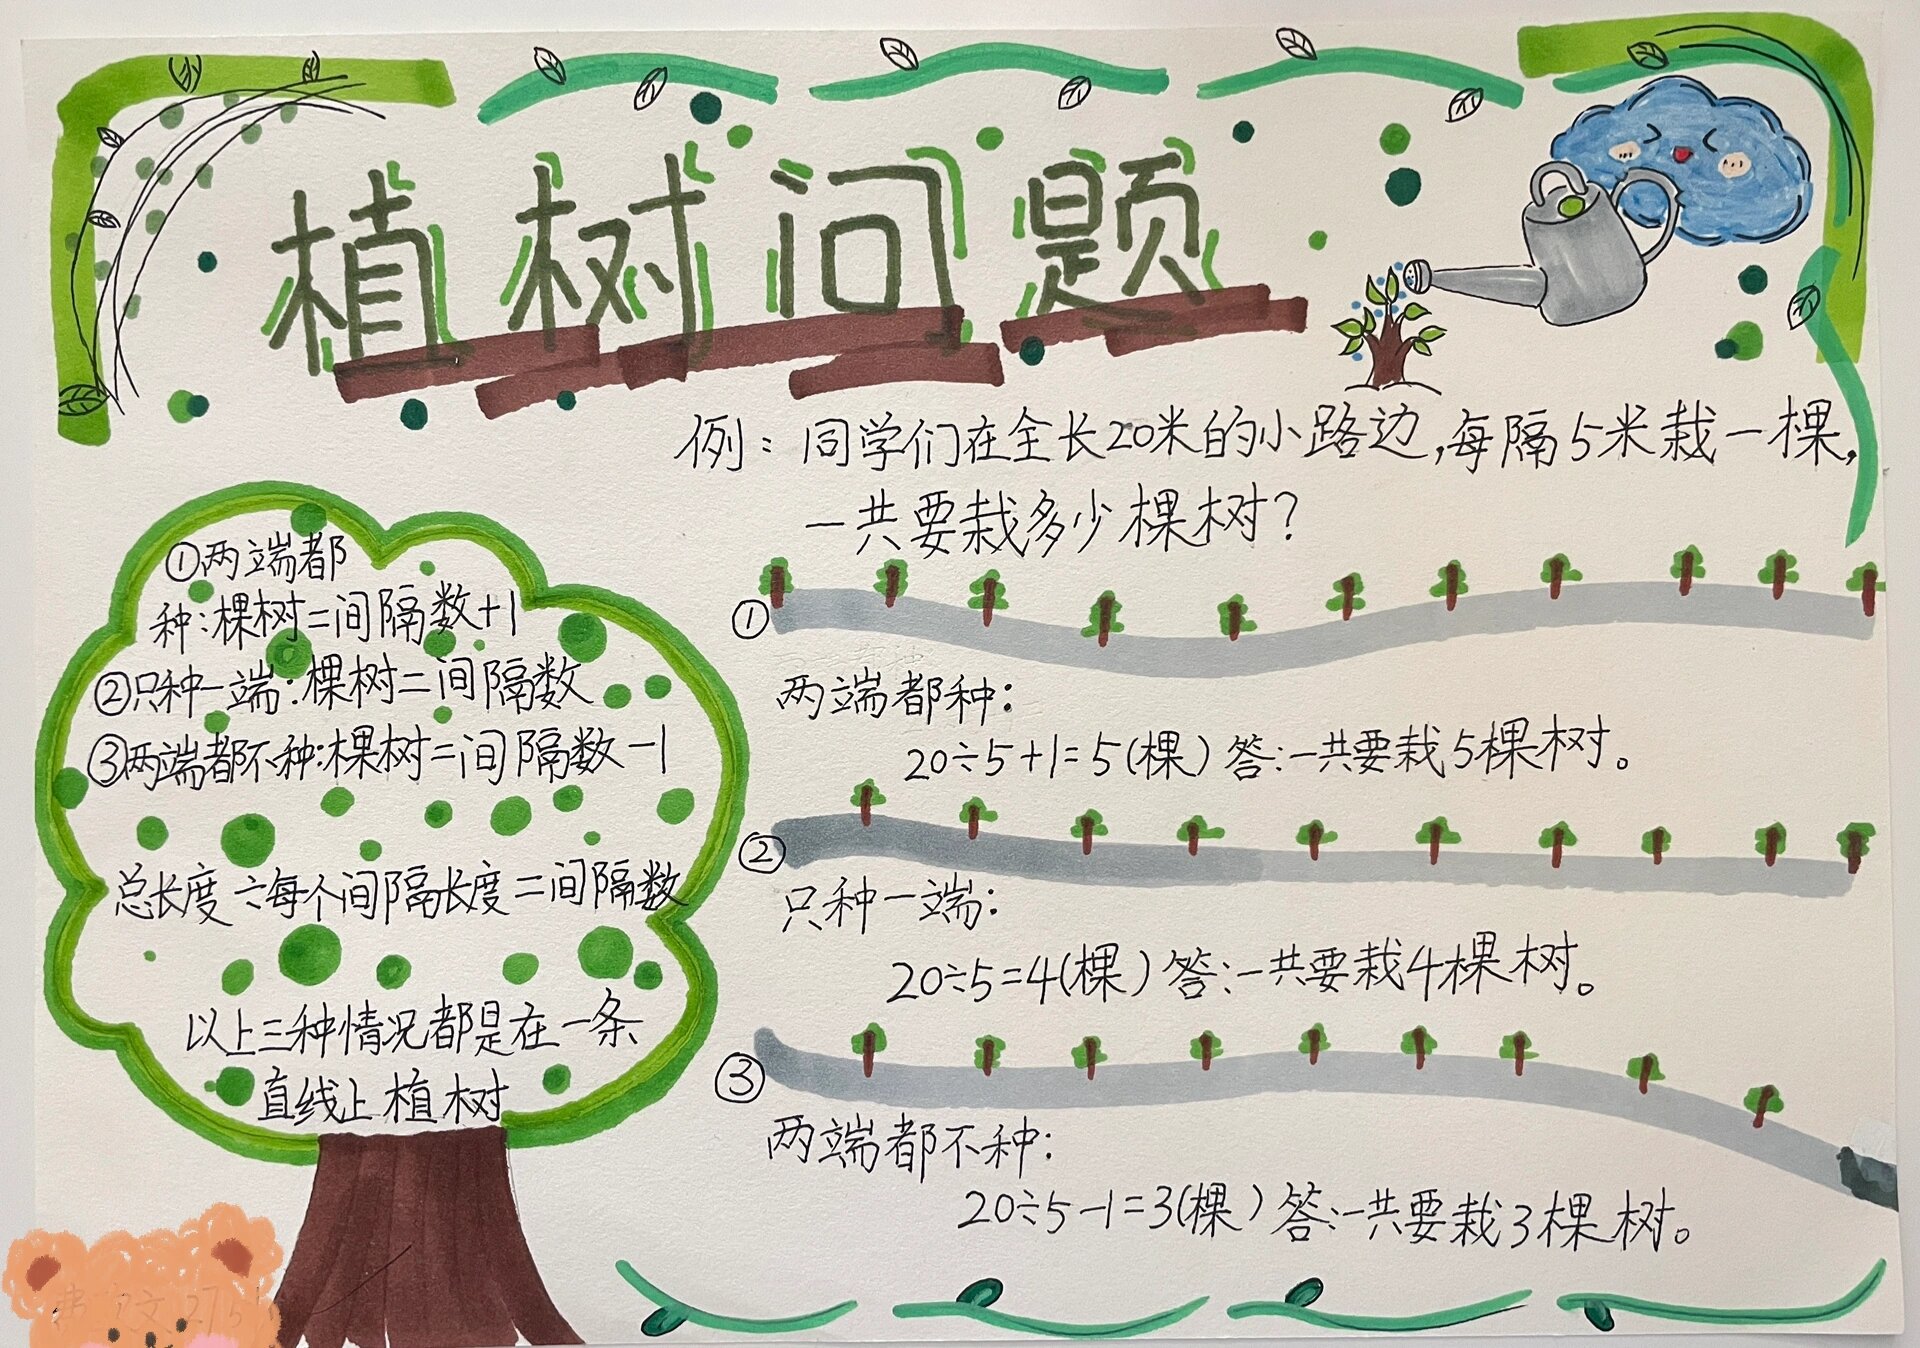 植树问题
例：同学们在全长20米的小路边，每隔5米栽一棵，
一共要栽多少棵树？
①两端都
种：棵树＝间隔数+1
②只种一端：棵树＝间隔数
③两端都不种：棵树＝间隔数-1
总长度÷每个间隔长度＝间隔数
以上三种情况都是在一条
直线上植树
①
两端都种：
20÷5+1=5(棵) 答：一共要栽5棵树。
②
只种一端：
20÷5=4(棵) 答：一共要栽4棵树。
③
两端都不种：
20÷5-1=3(棵) 答：一共要栽3棵树。